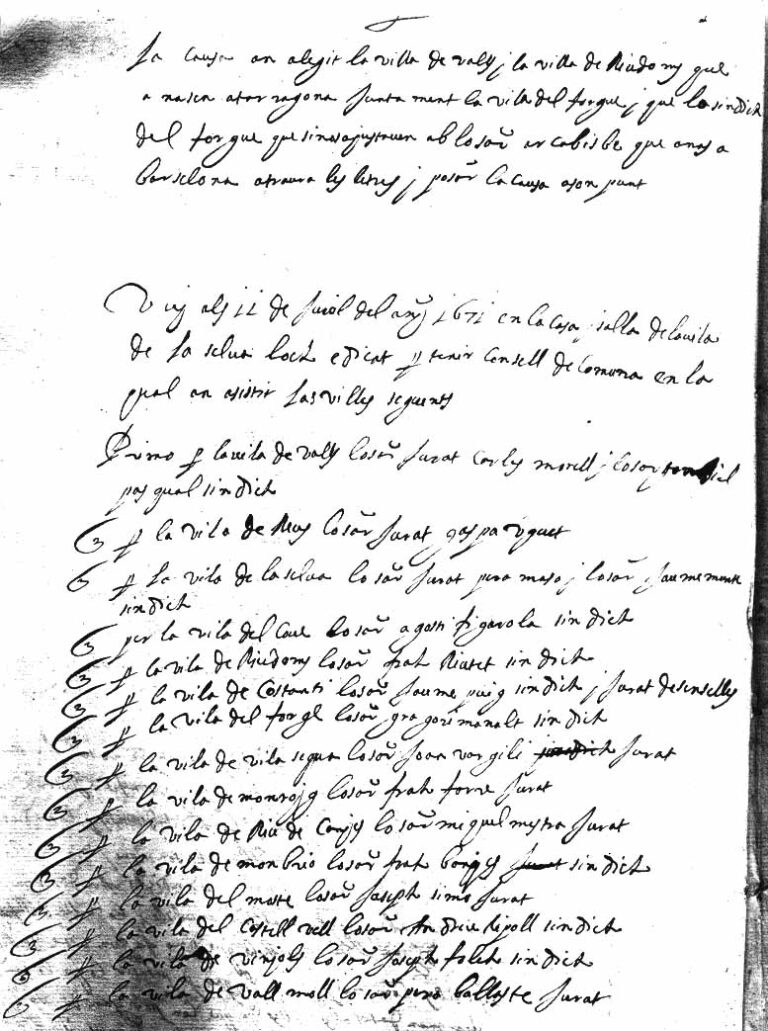 la causa an elegit la villa de valls j la villa de Riudoms que
anasen a tarragona juntament la vila del forgue j que lo sindich
del forgue que sines ajustaven ab lo señr arcabisbe que anas a
barselona a traura les letres j posar la causa a son punt
Vuy als 11 de juriol del any 1671 en la casa j salla de la vila
de la selva loch edicat per tenir Consell de Comuna en la
qual an asistit las villes seguents
Primo per la vila de valls lo señr jurat Carles morell j lo señr
pasqual sindich
per la vila de Reus lo señr jurat gaspa uguet
per la vila de la selva lo señr jurat pera maso j lo señr jaume
sindich
per la vila del Cave lo señr agosti figarola sindich
per la vila de Riudoms lo señr frah Riatet sindich
per la vila de Costanti lo señr jaume puig sindich j jurat desensellys
per la vila del forgl lo señr gragori manalt sindich
per la vila de vilasegua lo señr joan vargili sindich jurat
per la vila de monrojg lo señr frah forre jurat
per la vila de Riudecanjes lo señr miguel mestra jurat
per la vila de monbrio lo señr frah borges jurat sindich
per la vila del maste lo señr joseph simo jurat
per la vila del Castell vell lo señr Andreu Ripoll sindich
per la vila de vinjols lo señr joseph folch sindich
per la vila de vallmoll lo señr pera balleste jurat